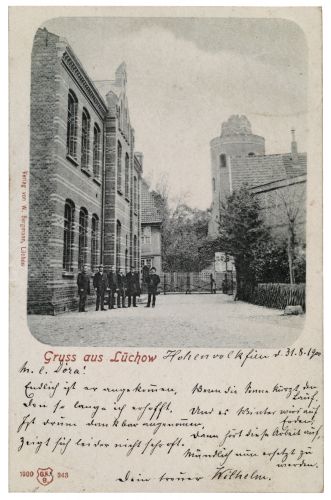 Verlag von W. Bergmann, Lüchow
Gruss aus Lüchow
d. 31.8.1900
M. l. Dora!
Endlich ist er angekommen,
Den so lange ich erhofft.
Ist drum dankbar angenommen,
Zeigt sich leider nicht so oft.
Wenn die Sonne kürzt den
Lauf,
Und es Winter wird auf
Erden,
Dann hört diese Arbeit auf,
Mündlich nun ersetzt zu
werden.
Dein treuer Wilhelm.
1900 343